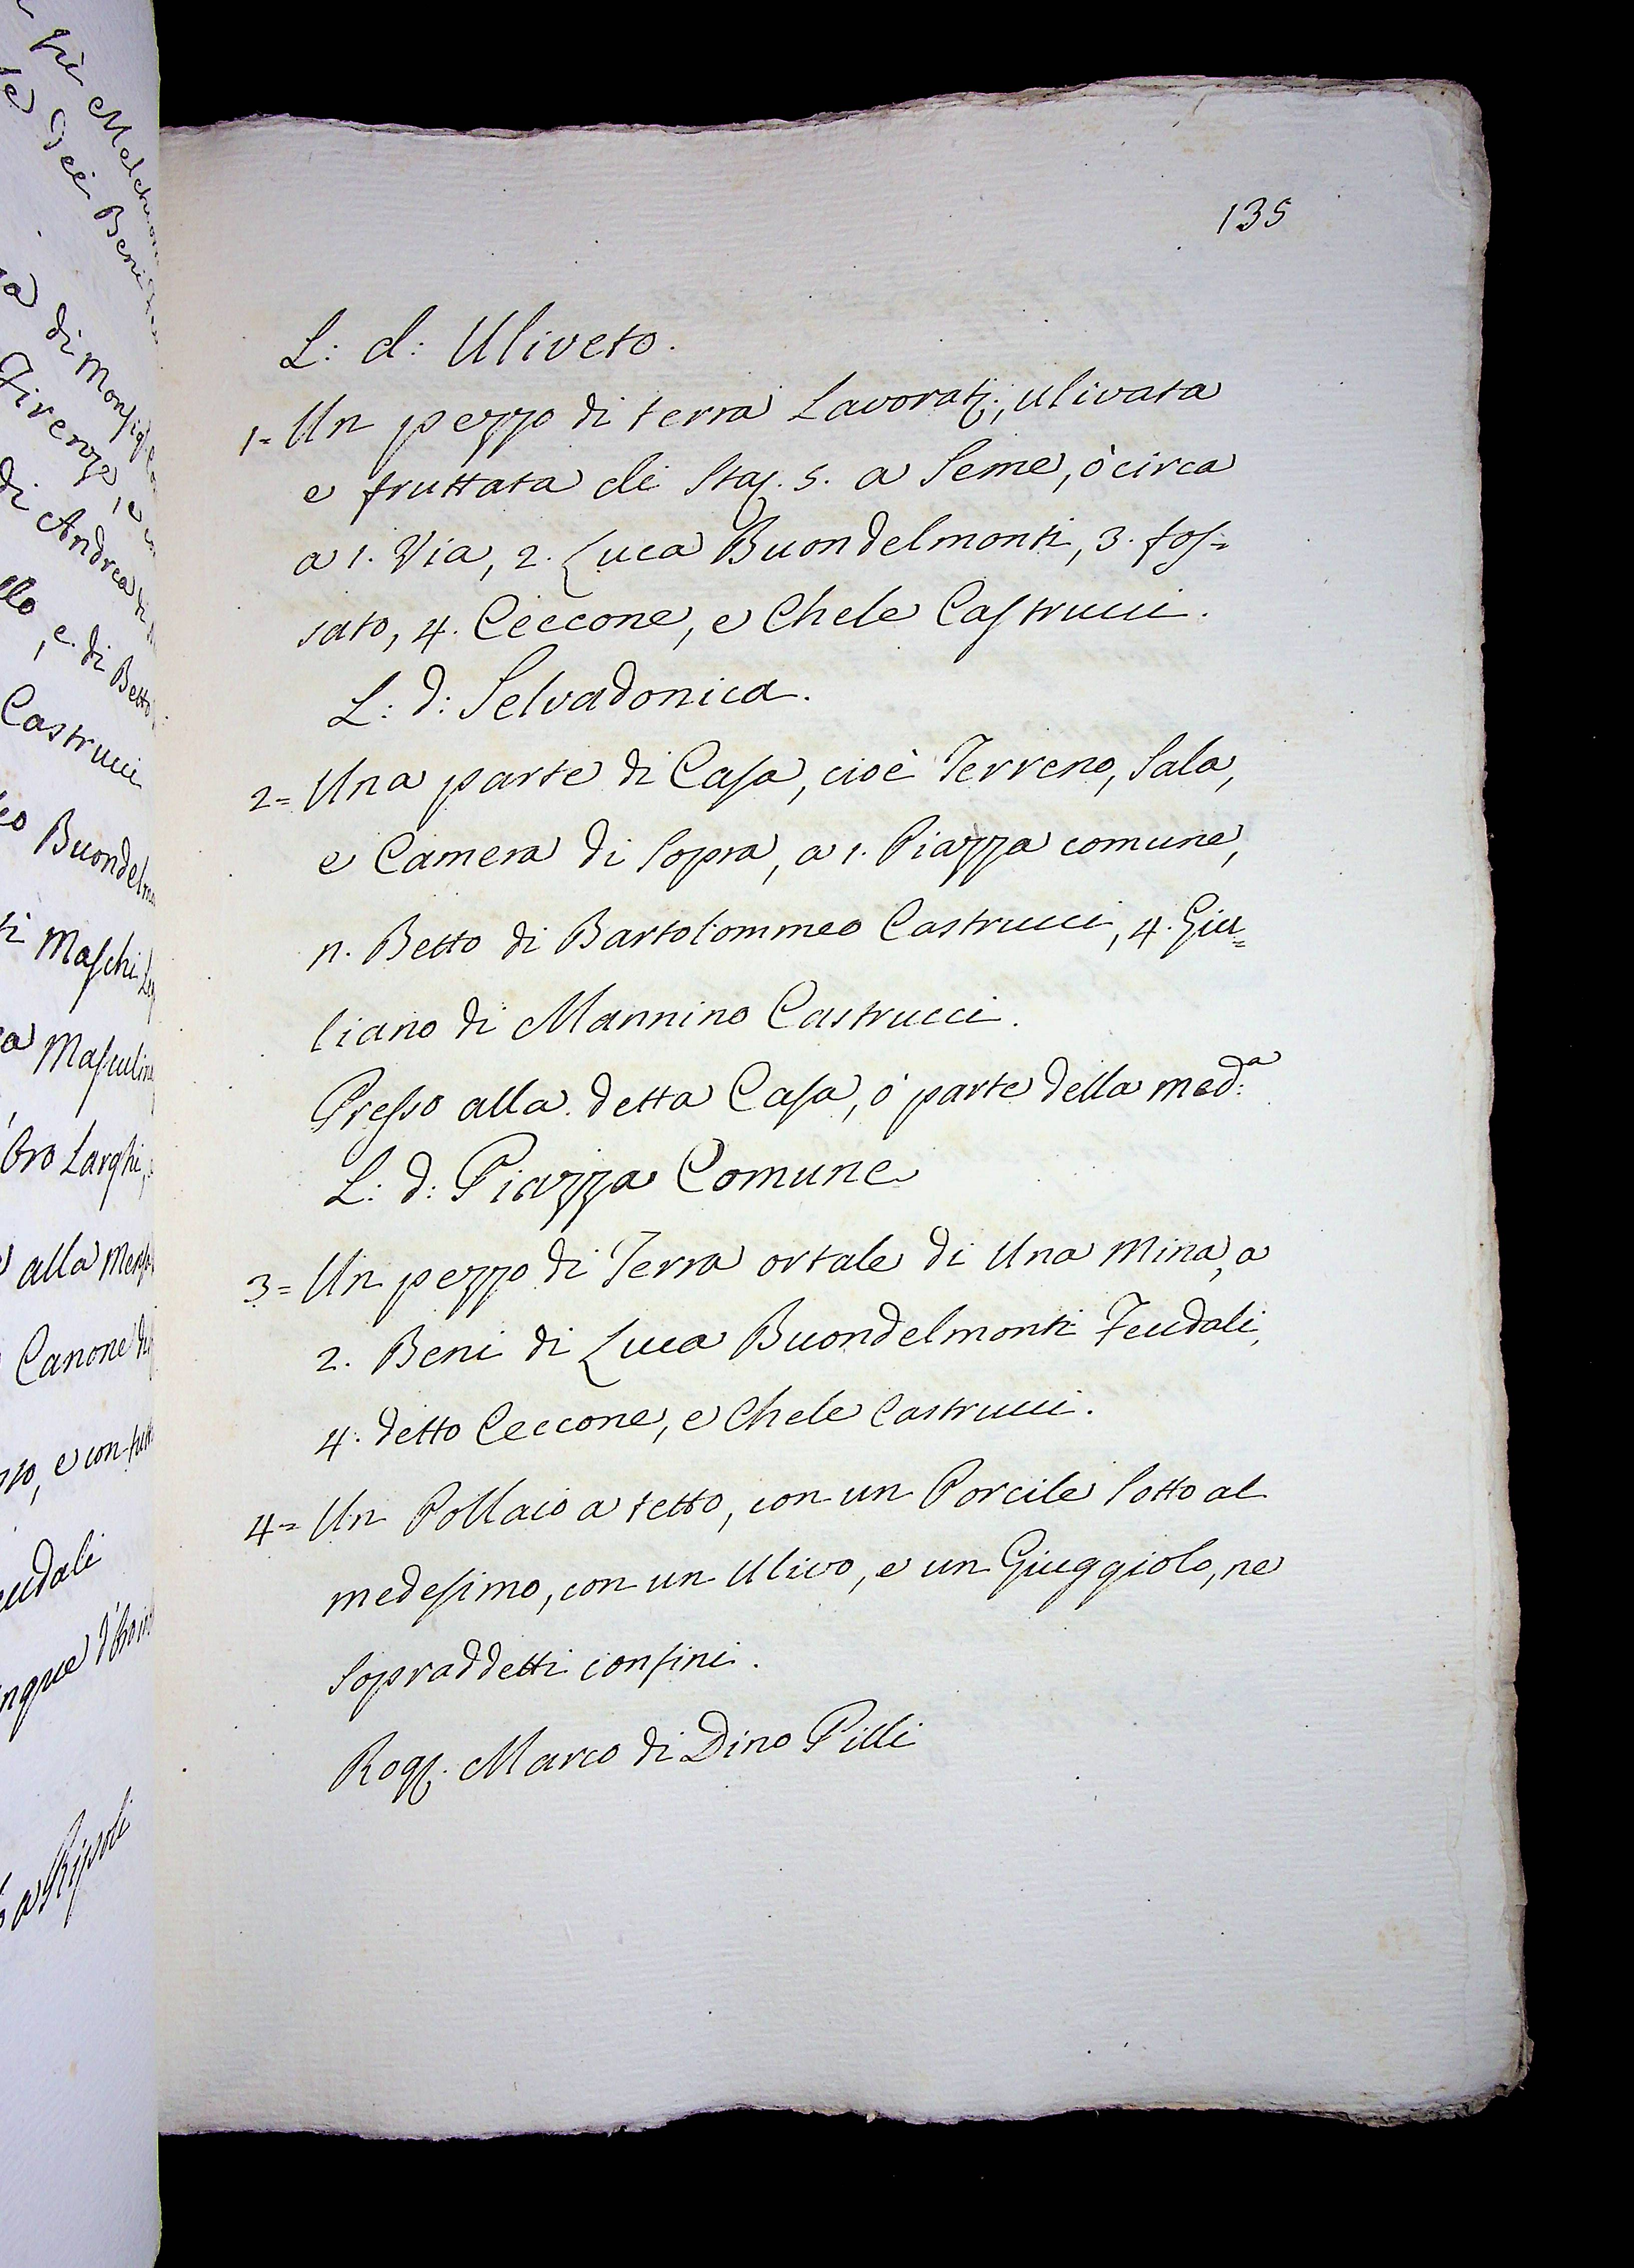 135
L: d: Uliveto.
1= Un pezzo di terra Lavorat:, ulivata
e fruttata di Sta. 5. a Seme, ò circa
a 1. Via, 2. Luca Buondelmonti, 3. fos=
sato, 4. Ceccone, e Chele Castrucci.
L: d: Selvadonica.
2= Una parte di Casa, cioè Terreno, Sala,
e Camera di Sopra, a 1. Piazza comune,
n. Betto di Bartolommeo Castrucci, 4. Giu=
liano di Mannino Castrucci.
Presso alla detta Casa, ò parte della med:ª
L: d: Piazza Comune
3= Un pezzo di Terra ortale di Una Mina, a
2. Beni di Luca Buondelmonti Feudali,
4. detto Ceccone, e Chele Castrucci.
4= Un Pollaio a tetto, con un Porcile Sotto al
medesimo, con un Ulivo, e un Giuggiolo, ne
Sopraddetti confini.
Rog. Marco di Dino Pilli
di Monsig
Firenze, e
di Andrea
e di Betto
Castrucci
Buondelmo
Maschi
Masculin
Oro Larghi,
alla Mensa
Canone
e con tutt
a Ripoli